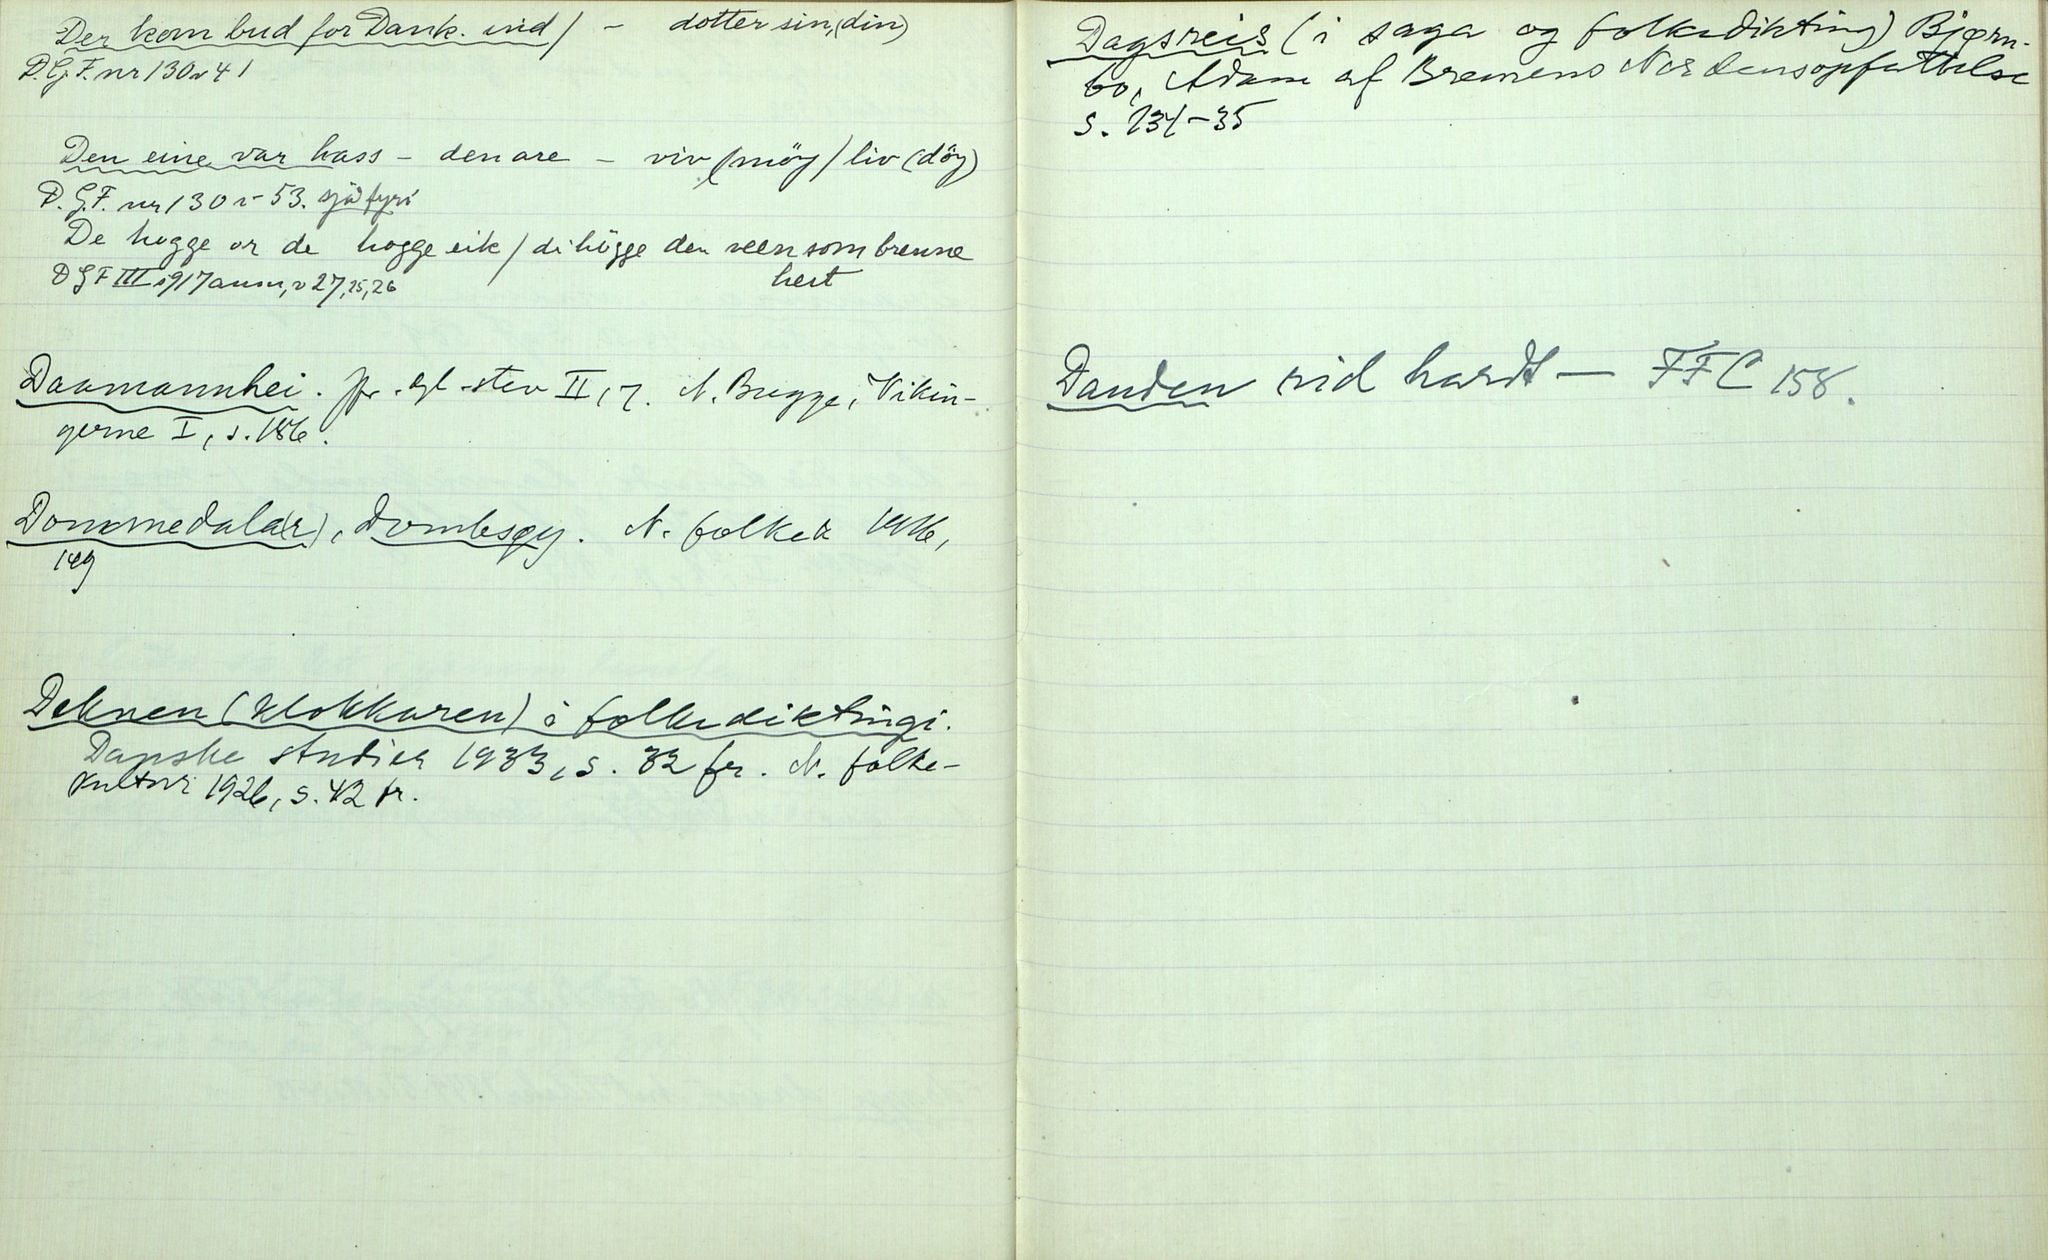 Der kom bud for Dank. ind / - dotter sin, (din)
D.G.F. nr 130 v 41
Den eine var hass - den are - viv (möy) liv (döy)
D.G.F. nr 130 v 53. sjå fyri
De hogge or de hogge eik / di högge den veen som brenne
heit
DGF III 1917 anm, v 27, 25, 26
Daamannhei. jfr. gl-stev II, 7. A. Bugge, Vikin-
gerne I, s. 186.
Dommedala(r), Dombsgy. N. folkek 1916,
149
Deknen (klokkaren) i folkediktingi.
Danske studier 1933, s. 32 fr. N. folke-
kultur 1926, s. 42 fr.
Dagsreis (i saga og folkedikting) Bjørn-
bo, Adam af Bremens Nordensopfattelse
s. 131-35
Dauden rid hardt - FFC 158.